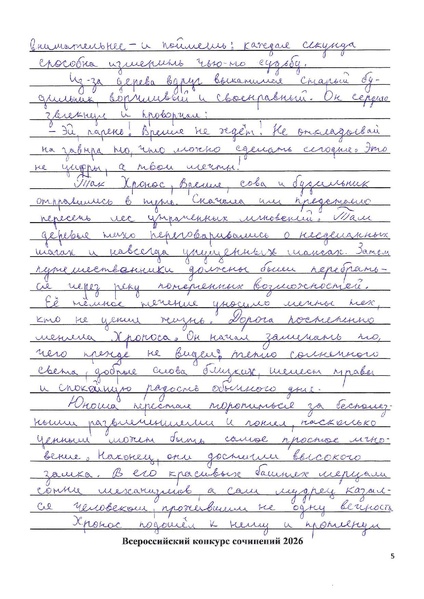 внимательнее – и поймёшь: каждая секунда
способна изменить чью-то судьбу.
Из-за дерева вдруг выкатился старый бу-
дильник, ворчливый и своенравный. Он сердито
звякнул и проворчал:
– Эй, парень! Время не ждёт! Не откладывай
на завтра то, что можно сделать сегодня. Это
не цифры, а твои мечты!
Так Хронос, Время, сова и будильник
отправились в путь. Сначала им предстояло
пересечь лес утраченных мгновений. Там
деревья тихо переговаривались о несделанных
шагах и навсегда упущенных шансах. Затем
путешественники должны были перебрать-
ся через реку потерянных возможностей.
Её тёмное течение уносило мечты тех,
кто не ценил жизнь. Дорога постепенно
меняла Хроноса. Он начал замечать то,
чего прежде не видел: тепло солнечного
света, добрые слова близких, шелест травы
и спокойную радость обычного дня.
Юноша перестал торопиться за бесполез-
ными развлечениями и понял, насколько
ценным может быть самое простое мгно-
вение. Наконец, они достигли высокого
замка. В его красивых башнях мерцали
сотни механизмов а сам мудрец казал-
ся человеком, прожившим не одну вечность
Хронос подошёл к нему и протянул
Всероссийский конкурс сочинений 2026
5